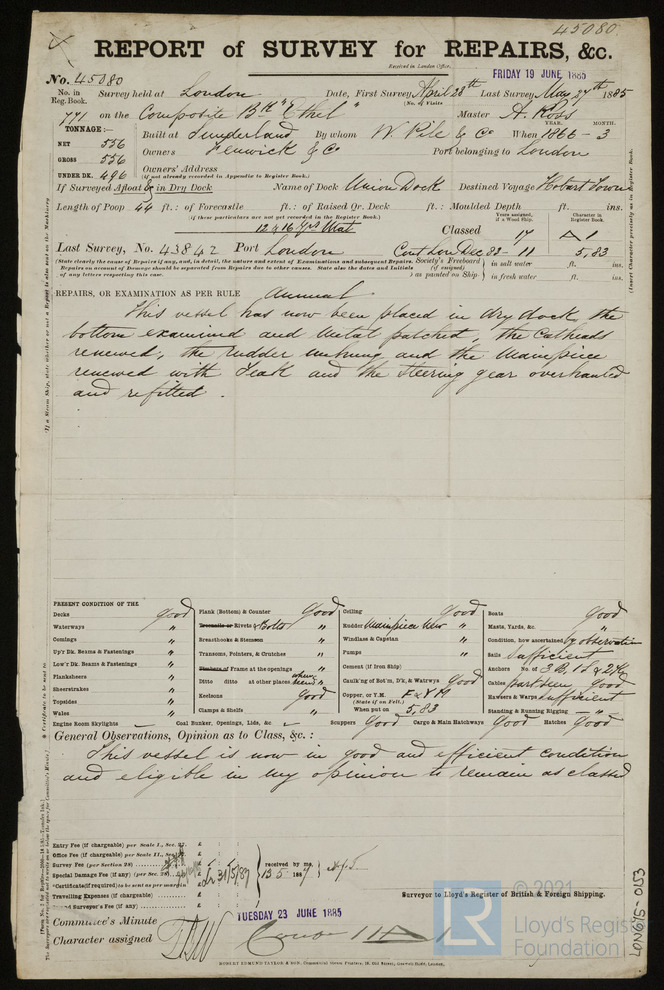 45080
REPORT of SURVEY for REPAIRS, &c.
Received in London Office, FRIDAY 19 JUNE 1885
No. 45080
No. in Reg. Book. Survey held at London Date, First Survey April 28th Last Survey May 27th 1885
(No. of Visits
771 on the Composite Bk "Ethel" Master A. Ross
TONNAGE:— YEAR. MONTH.
NET 556 Built at Sunderland By whom W Pile & Co When 1866 - 3
GROSS 556 Owners Fenwick & Co Port belonging to London
UNDER DK. 496 Owners' Address
(if not already recorded in Appendix to Register Book.)
If Surveyed Afloat & in Dry Dock Name of Dock Union Dock Destined Voyage Hobart Town
Length of Poop 44 ft.: of Forecastle ft.: of Raised Qr. Deck ft.: Moulded Depth ft. ins.
(if these particulars are not yet recorded in the Register Book.)
Years assigned, if a Wood Ship. Character in Register Book.
Classed 17 A 1
Last Survey, No. 43842 Port London Cont Lon Dec 83 - 11 5,83
(State clearly the cause of Repairs if any, and, in detail, the nature and extent of Examinations and subsequent Repairs. Society's Freeboard in salt water ft. ins.
Reports on account of Damage should be separated from Repairs due to other causes. State also the dates and Initials (if assigned)
of any letters respecting this case. as painted on Ship in fresh water ft. ins.
REPAIRS, OR EXAMINATION AS PER RULE Annual
This vessel has now been placed in dry dock, the
bottom examined and metal patched, the Catheads
renewed, the rudder unhung and the Mainpiece
renewed with Teak and the steering gear overhauled
and refitted.
PRESENT CONDITION OF THE
Decks good
Waterways "
Comings "
Up'r Dk. Beams & Fastenings "
Low'r Dk. Beams & Fastenings "
Planksheers "
Sheerstrakes "
Topsides "
Wales "
Engine Room Skylights
Plank (Bottom) & Counter Good
Treenails or Rivets & Bolts "
Breasthooks & Stemson "
Transoms, Pointers, & Crutches "
Timbers or Frame at the openings "
Ditto ditto at other places where seen "
Keelsons Good
Clamps & Shelfs "
Coal Bunker, Openings, Lids, &c.
Ceiling Good
Rudder Mainpiece New "
Windlass & Capstan "
Pumps "
Cement (if Iron Ship)
Caulk'ng of Bot'm, D'k, & Watrwys Good
Copper, or Y.M. F & YM
(State if on Felt.)
When put on 5,83
Scuppers Good Cargo & Main Hatchways Good Hatches Good
Boats Good
Masts, Yards, &c. "
Condition, how ascertained by observation
Sails Sufficient
Anchors No. of 3 B, 1 S & 2 K
Cables part seen Good
Hawsers & Warps Sufficient
Standing & Running Rigging "
General Observations, Opinion as to Class, &c.:
This vessel is now in good and efficient condition
and eligible in my opinion to remain as classed
Entry Fee (if chargeable) per Scale I., Sec. 27. £
Office Fee (if chargeable) per Scale II., Sec. £
Survey Fee (per Section 28) £
Special Damage Fee (if any) (per Sec. 28) £
Certificate (if required) to be sent as per margin £
Travelling Expenses (if chargeable) £
Surveyor's Fee (if any) £
received by me,
Surveyor to Lloyd's Register of British & Foreign Shipping.
Committee's Minute TUESDAY 23 JUNE 1885
Character assigned
ROBERT EDMUND TAYLOR & SON
© 2021
LR Lloyd's Register
Foundation
LON695-0153